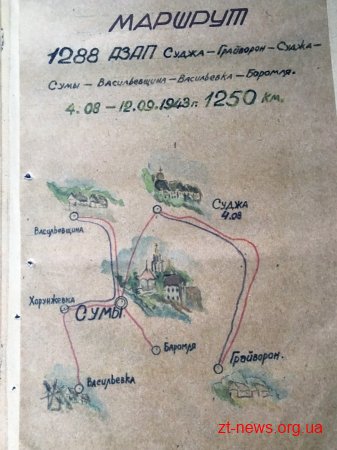 МАРШРУТ
1288 АЗАП СУДЖА – ГРАЙВОРОН – СУДЖА –
СУМЫ – ВАСИЛЬЕВЩИНА – ВАСИЛЬЕВКА – БОРОМЛЯ.
4.08 – 12.09.1943 г. 1250 км.
ВАСИЛЬЕВЩИНА
СУДЖА
4.08
ХОРУНЖЕВКА
СУМЫ
БОРОМЛЯ
ГРАЙВОРОН.
ВАСИЛЬЕВКА
zt-news.org.ua